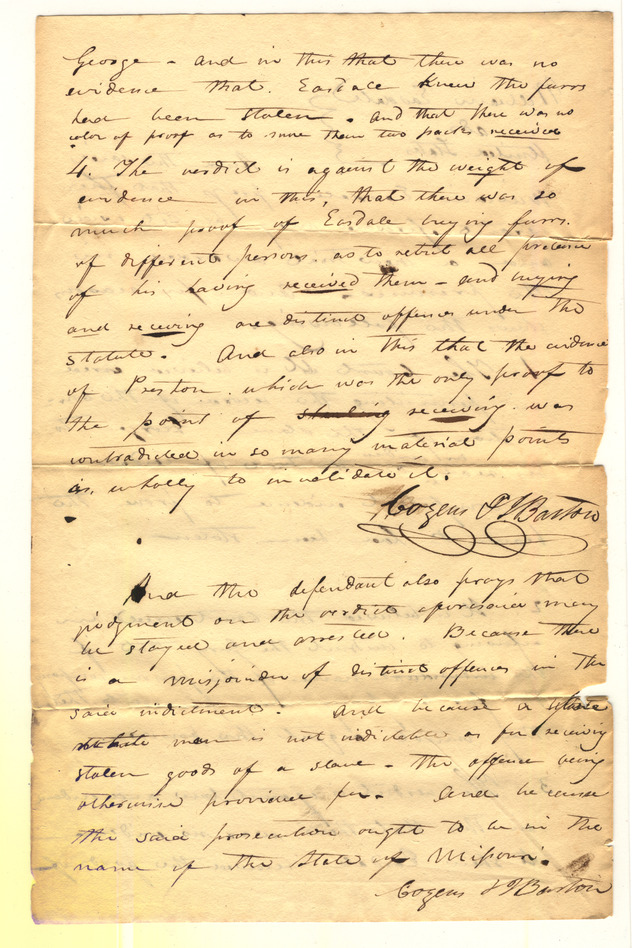 George - and in this that there was no
evidence that. Easdale knew the furrs
had been stolen. and that there was no
color of proof as to more than two packs received
4. The verdict is against the weight of
evidence in this, that there was so
much proof of Easdale buying furrs.
of different persons. as to rebut all pretence
of his having received them - and buying
and receiving are distinct offences under the
statute. And also in this that the evidence
of Preston. which was the only proof to
the point of receiving. was
contradicted in so many material points
as, wholly to invalidate it.
Cozens & J Barton
And the defendant also prays that
judgment on the verdict aforesaid may
be stayed and arrested. Because there
is a misjoinder of distinct offences in the
said indictment. And because a
white man is not indictable as for receiving
stolen goods of a slave - the offence being
otherwise provided for - And because
the said prosecution ought to be in the
name of the State of Missouri.
Cozens & J Barton